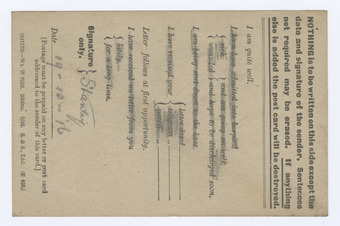 NOTHING is to be written on this side except the
date and signature of the sender. Sentences
not required may be erased. If anything
else is added the post card will be destroyed.
I am quite well.
I have been admitted into hospital
{ sick } and am going on well.
{ wounded } and hope to be discharged soon.
I am being sent down to the base.
I have received your { letter dated
{ telegram
{ parcel
Letter follows at first opportunity.
I have received no letter from you
{ lately.
{ for a long time.
Signature
only. } Stanley
Date 19-12-16
[Postage must be prepaid on any letter or post card
addressed to the sender of this card.]